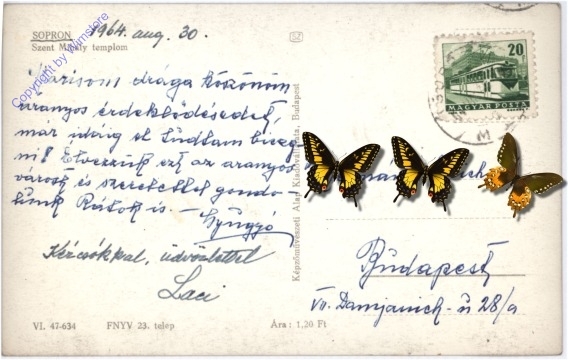 SOPRON
Szent Mihály templom
1964. aug. 30.
Copyright by Numstore
drága köszönöm
aranyos érdeklődésedet,
már idáig el tudtam biceg
ni! Élvezzük ezt az aranyos
várost és szeretettel gondo
lunk Rátok is –
Kézcsókkal, üdvözlettel
Laci
VI. 47-634
FNYV 23. telep
Ára: 1,20 Ft
Képzőművészeti Alap Kiadóvállalata, Budapest
20
MAGYAR POSTA
Budapest
VII. Damjanich-u 28/a